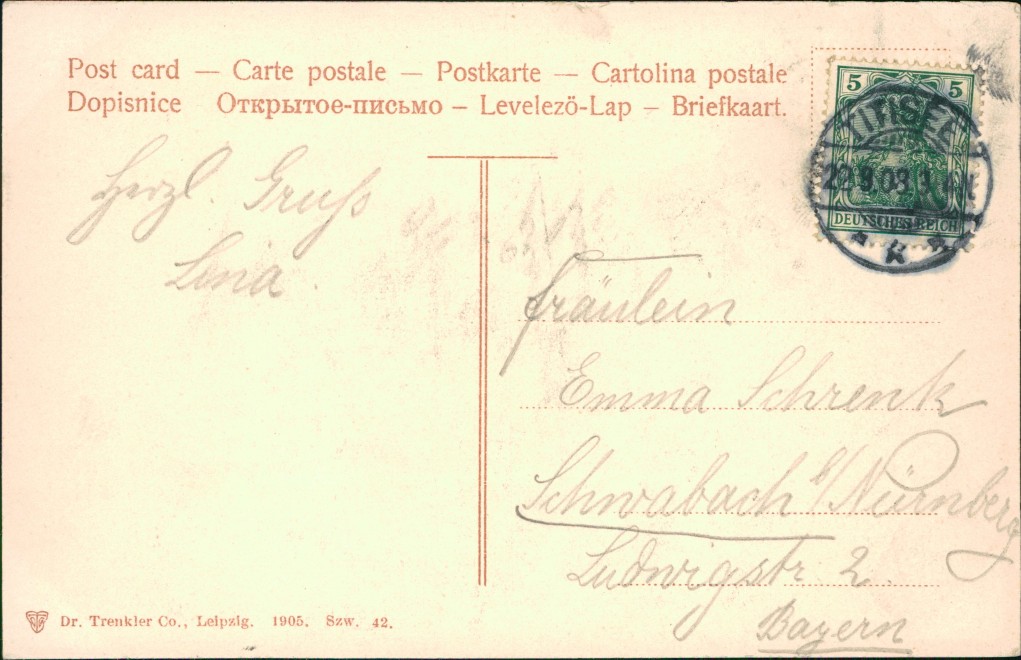 Post card — Carte postale — Postkarte — Cartolina postale
Dopisnice Открытое-письмо – Levelezö-Lap – Briefkaart.
5 5
TITISEE
9.08
DEUTSCHES REICH
Herzl. Gruß
Lena.
Fräulein
Emma Schrenk
Schwabach b/Nürnberg
Ludwigstr 2.
Bayern
Dr. Trenkler Co., Leipzig. 1905. Szw. 42.